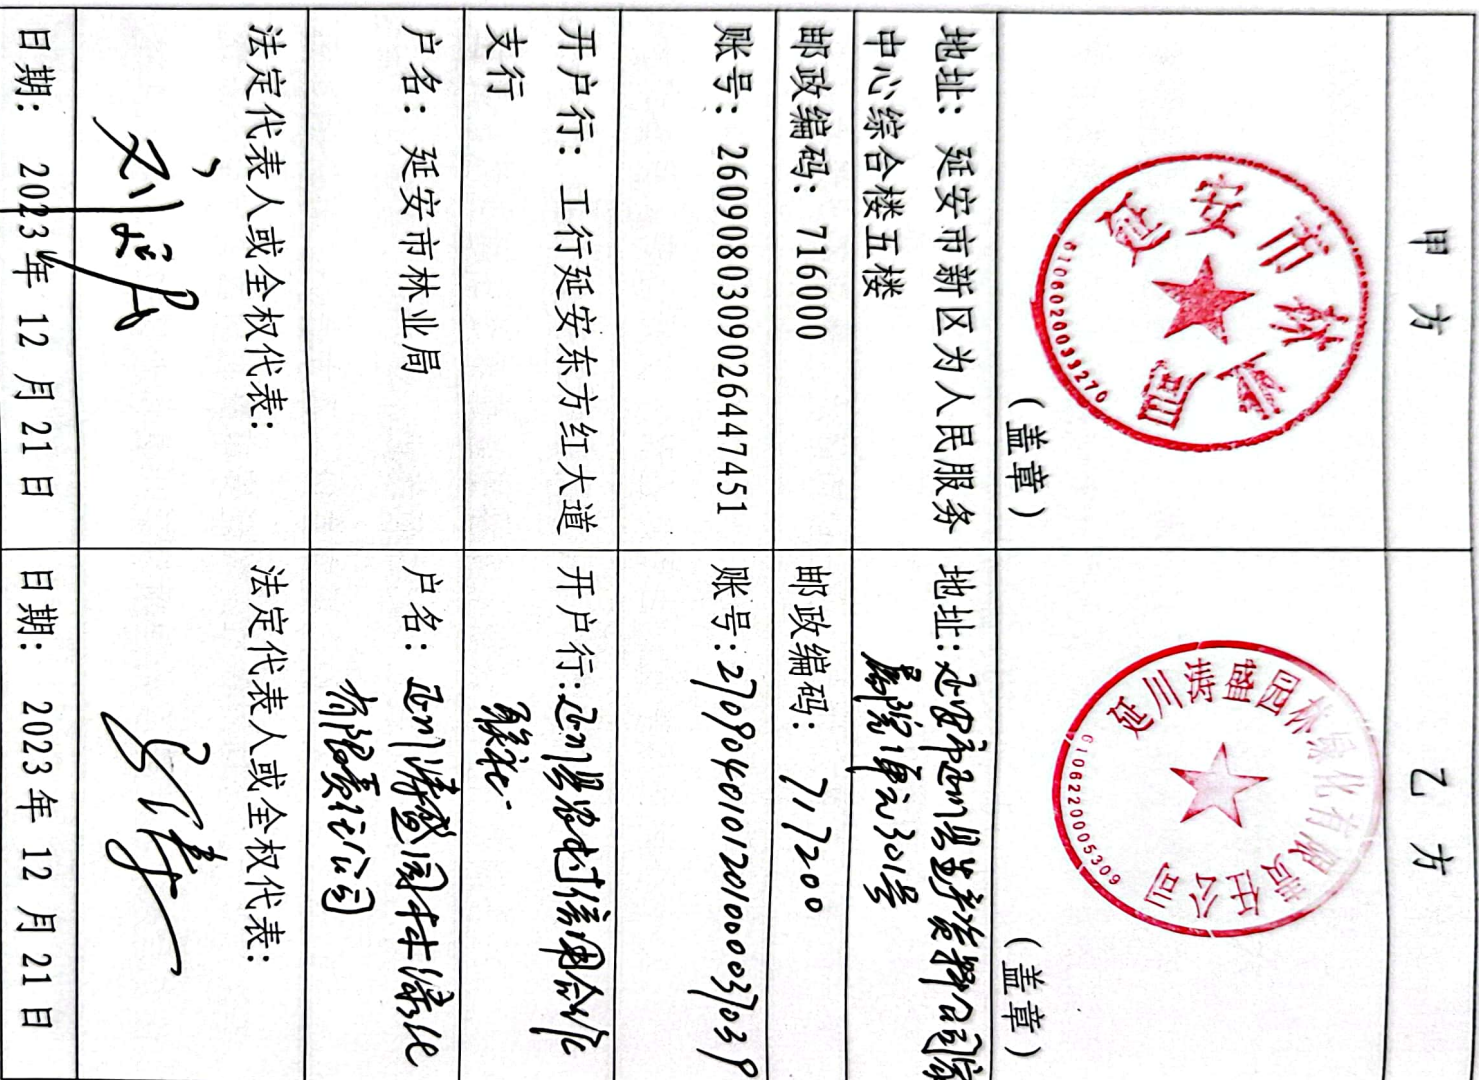 甲 方
乙 方
延安市林业局
6106020033270
(盖章)
延川涛盛园林绿化有限责任公司
6106220005309
(盖章)
地址: 延安市新区为人民服务
中心综合楼五楼
地址:延安市延川县生产资料公司家
属院1单元301号
邮政编码: 716000
邮政编码: 717200
账号: 2609080309026447451
账号:2709040101201000037039
开户行: 工行延安东方红大道
支行
开户行:延川县农村信用合作
联社
户名: 延安市林业局
户名: 延川涛盛园林绿化
有限责任公司
法定代表人或全权代表:
法定代表人或全权代表:
日期: 2023年 12 月 21 日
日期: 2023 年 12 月 21 日